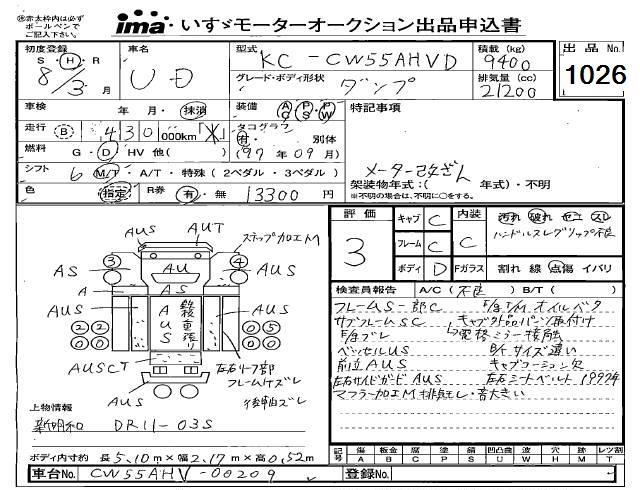 ※赤太枠内は必ず
ボールペンで
ご記入下さい。
ima・いすゞモーターオークション出品申込書
初度登録
S・H・R
8/3月
車名
UD
型式
KC-CW55AHVD
積載 (kg)
9400
グレード・ボディ形状
ダンプ
排気量 (cc)
21200
出品No.
1026
車検 年・月・抹消
装備 AC PS PW
特記事項
走行 B 430 000km
タコグラフ
有・ 別体
(97年09月)
燃料 G・D HV 他( )
シフト 6 M/T・A/T・特殊(2ペダル・3ペダル)
メーター改ざん
架装物年式:( 年式)・不明
※不明の場合は、不明に○をする。
色 指定 R券 有・無 13300円
AUS AUT ステップ加工M
③ ④
AS AU AUS
A AS
AUS AUS
鉄板重張り
②② ⓪⑤
②② ⓪⓪
AUSCT
左右リーフ部
フレームケズレ
AUS AUS
後軸ズレ
上物情報
新明和 DR11-03S
ボディ内寸約 長5.10m×幅2.17m×高0.52m
評価
3
キャブ C
フレーム C
ボディ D
内装 C
Fガラス
汚れ 破れ セコ スレ
ハンドルスレグリップ不良
割れ 線 点傷 イバリ
検査員報告 A/C(不良) B/T( )
フレームS一部C
サブフレームSC
ベッセルUS
前立AUS
左右サイドガードAUS
マフラー加工M排気モレ・音大きい
E/g T/M オイルバク
キャブ外品パーツ取付け
↳電格ミラー接触
B/tサイズ違い
キャブコーション欠
左右シートベルト1997年
記号
傷 A
板金 B
腐 C
塗 P
錆 S
凹凸曲 U
波 W
穴 H
跡 M
レツ割 T
車台No. CW55AHV-00209
登録No.